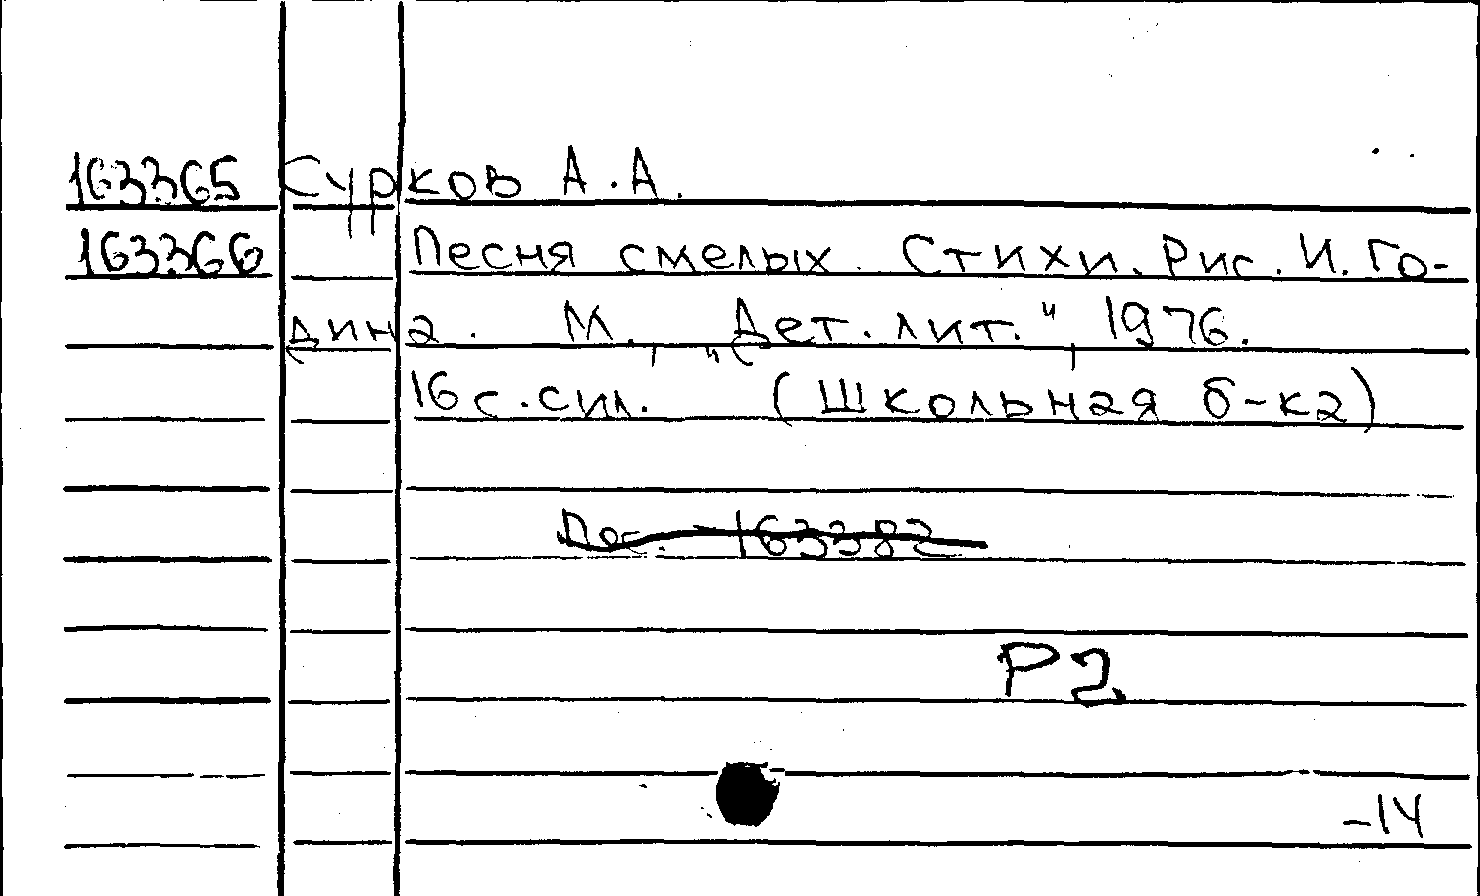 163365 Сурков А.А.
163366 Песня смелых. Стихи. Рис. И. Го-
дина. М., „Дет. лит.", 1976.
16 с. с ил. (Школьная б-ка)
163382
Р2
-14